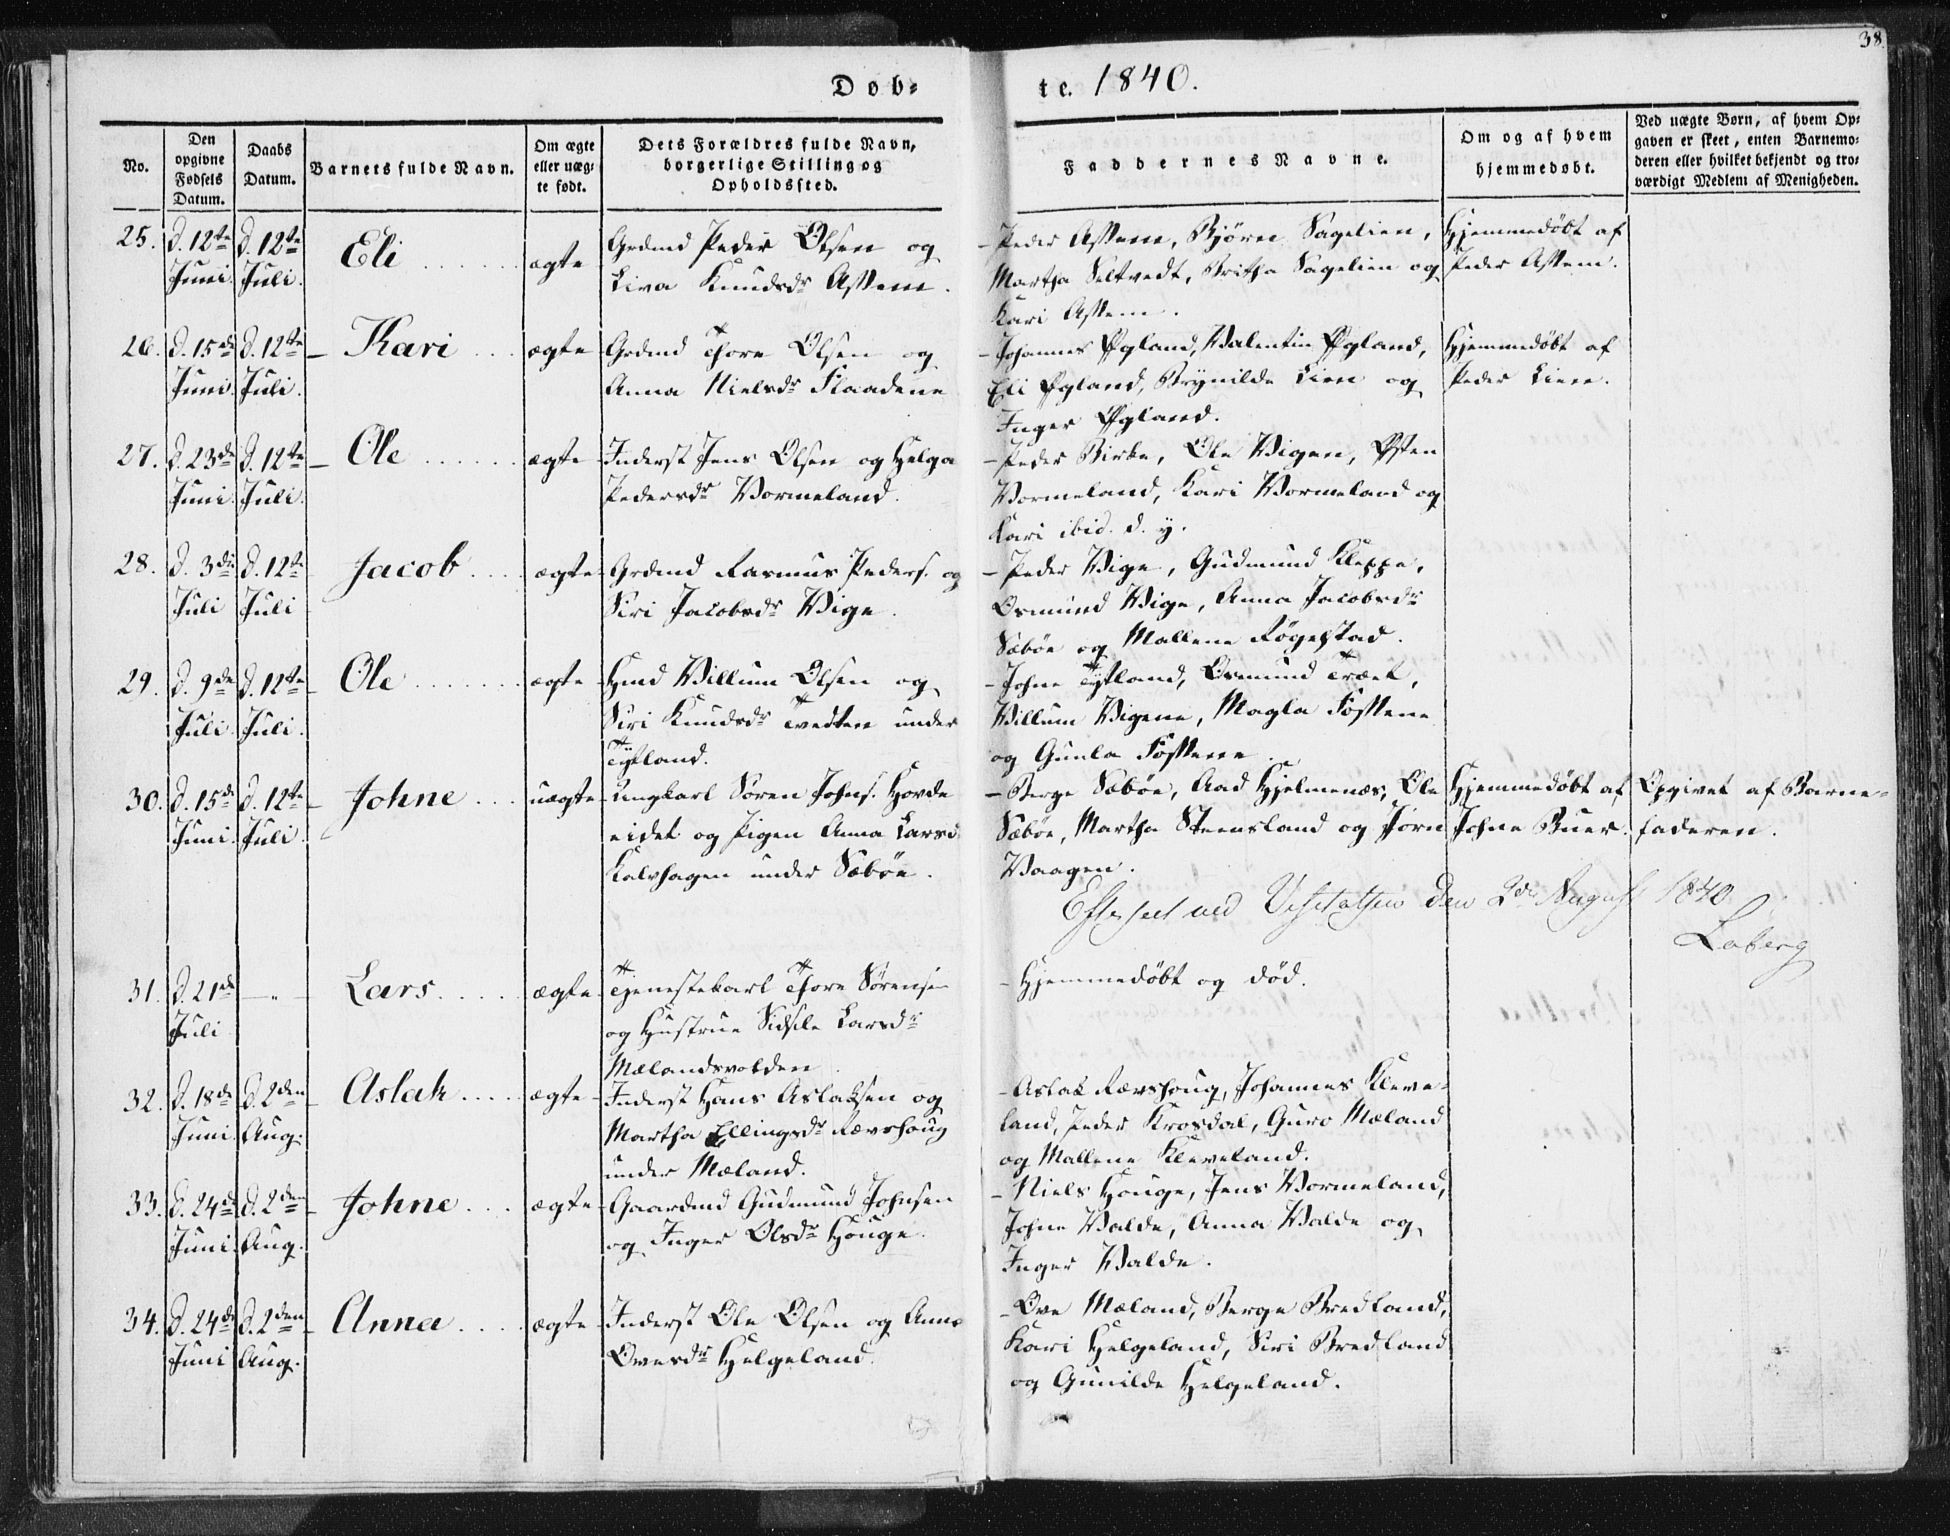 38
Døb=
te. 1840.
No.
Den opgivne Fødsels Datum.
Daabs Datum.
Barnets fulde Navn.
Om ægte eller uæg= te født.
Dets Forældres fulde Navn, borgerlige Stilling og Opholdssted.
Faddernes Navne.
Om og af hvem hjemmedøbt.
Ved uægte Børn, af hvem Op= gaven er skeet, enten Barnemo= deren eller hvilket bekjendt og tro= værdigt Medlem af Menigheden.
25. d. 12te Juni. d. 12te Juli. Eli ægte
Grdmd Peder Olsen og
Liva Knudsdr Assem.
Peder Assem, Bjørn Sagelien,
Martha Seltvedt, Britha Sagelien og
Kari Assem.
Hjemmedøbt af
Peder Assem.
26. d. 15de Juni. d. 12te Juli. Kari ægte
Grdmd Thore Olsen og
Anna Nielsdr Flaadene
Johannes Øgland, Valentin Øgland,
Eli Øgland, Brynilde Lien og
Inger Øgland.
Hjemmedøbt af
Peder Lien.
27. d. 23de Juni. d. 12te Juli. Ole ægte
Inderst Jens Olsen og Helga
Pedersdr Vormeland.
Peder Birke, Ole Vigen, Østen
Vormeland, Kari Vormeland og
Kari ibid. d. y.
28. d. 3die Juli d. 12te Juli Jacob ægte
Grdmd Rasmus Peders. og
Siri Jacobsdr Vige.
Peder Vige, Gudmund Kleppe,
Osmund Vige, Anna Jacobsdr
Sæbøe og Mallene Røgelstad.
29. d. 9de Juli. d. 12te Juli. Ole ægte
Hmd Villum Olsen og
Siri Knudsdr Tvedten under
Tysland.
Johne Tysland, Osmund Træet,
Villum Vigene, Magla Fossene
og Gunla Fossene.
30. d. 15de Juni. d. 12te Juli. Johne uægte
Ungkarl Søren Johns. Hovde
eidet og Pigen Anna Larsd.
Kalvhagen under Sæbøe.
Berge Sæbøe, Aad Hjelmenæs, Ole
Sæbøe, Martha Steensland og Jørn
Vaagen.
Hjemmedøbt af
Johne Buer.
Opgivet af Barne=
faderen.
Efterseet ved Visitatsen den 2de August 1840
Loberg
31. d. 21de Juli — " — Lars ægte
Tjenestekarl Thore Sørensen
og Hustrue Sidsele Larsdr
Mælandsvolden
Hjemmedøbt og død.
32. d. 18de Juni d. 2den Aug: Aslak ægte
Inderst Hans Aslaksen og
Martha Ellingsdr Rævehoug
under Mæland.
Aslak Rævehoug, Johannes Kleve=
land, Peder Krosdal, Guro Mæland
og Mallene Kleveland.
33. d. 24de Juni. d. 2den Aug. Johne ægte
Gaardmd Gudmund Johnsen
og Inger Olsdr Houge.
Niels Houge, Jens Vormeland,
Johne Valde, Anna Valde og
Inger Valde.
34. d. 24de Juni d. 2den Aug. Anna ægte
Inderst Ole Olsen og Anna
Ovesdr Helgeland.
Ove Mæland, Berge Bredland,
Kari Helgeland, Siri Bredland
og Gunilde Helgeland.